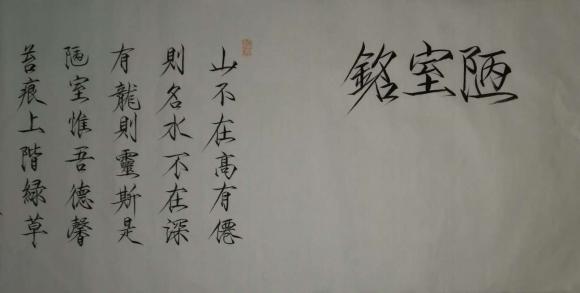 陋室銘
山不在高有僊
則名水不在深
有龍則靈斯是
陋室惟吾德馨
苔痕上階緑草